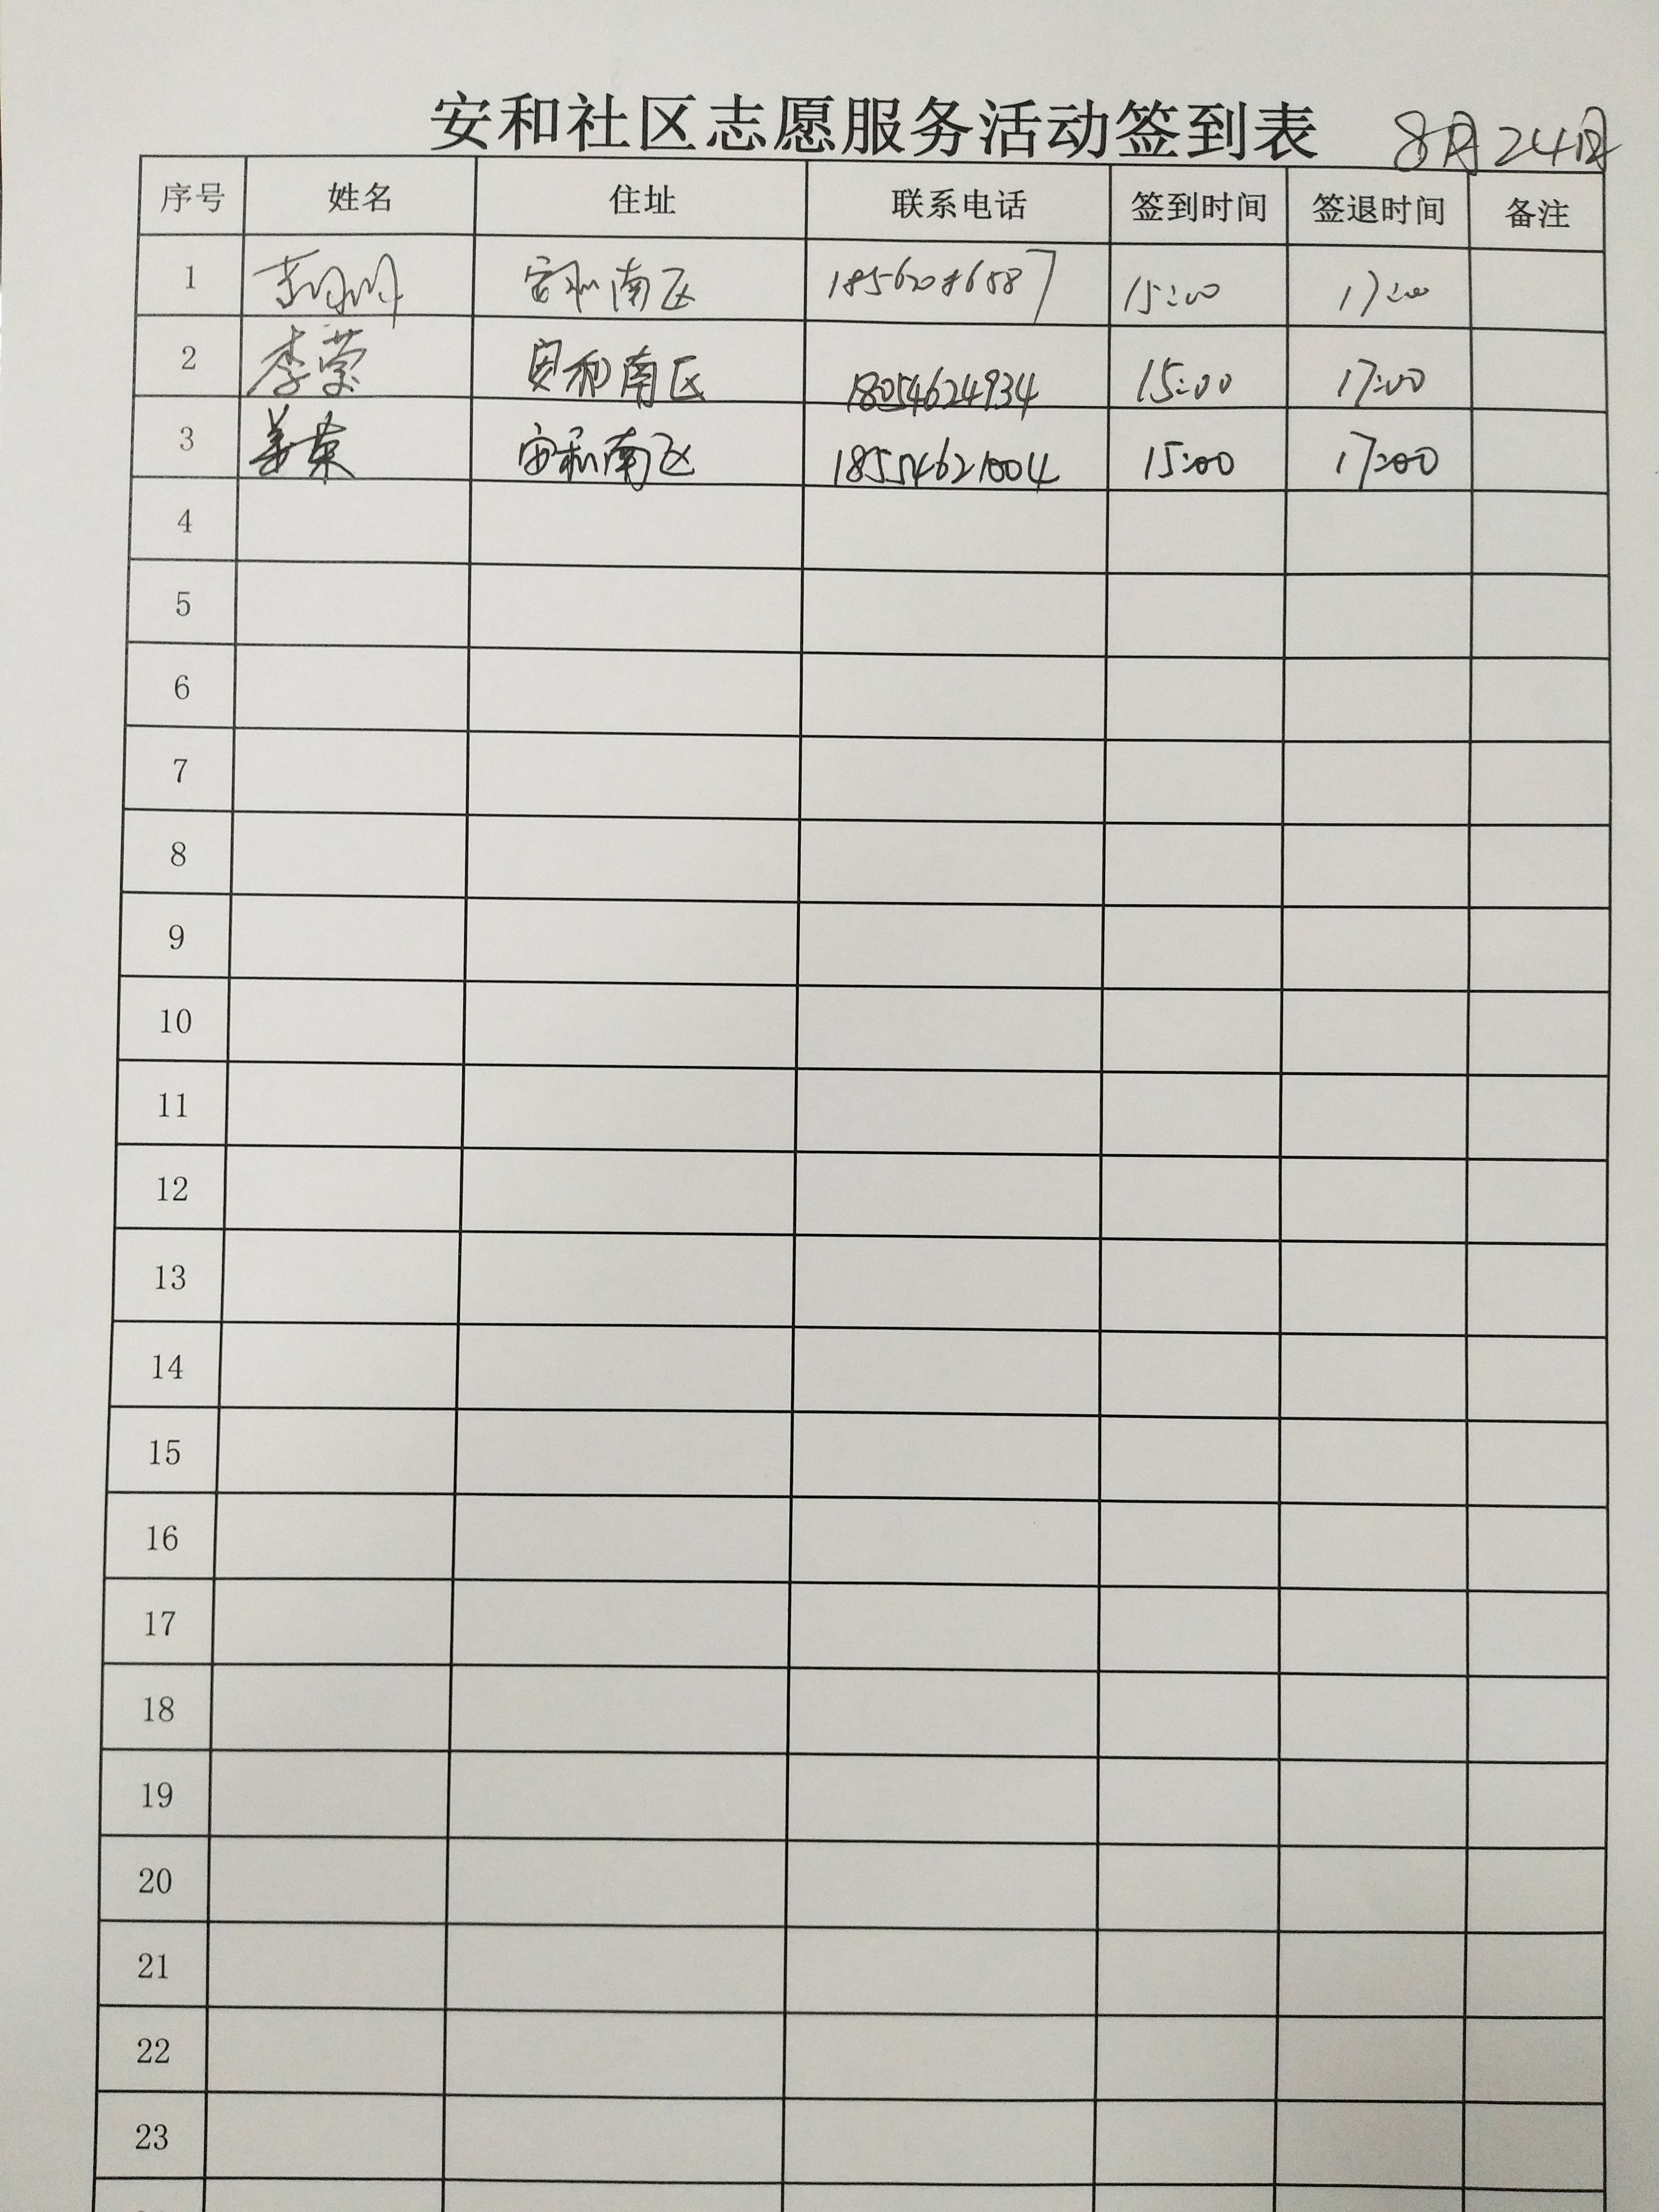 安和社区志愿服务活动签到表 8月24日
序号 姓名 住址 联系电话 签到时间 签退时间 备注
1 安和南区 15:00 17:00
2 李莹 安和南区 18054624934 15:00 17:00
3 姜荣 安和南区 18554621004 15:00 17:00
4
5
6
7
8
9
10
11
12
13
14
15
16
17
18
19
20
21
22
23